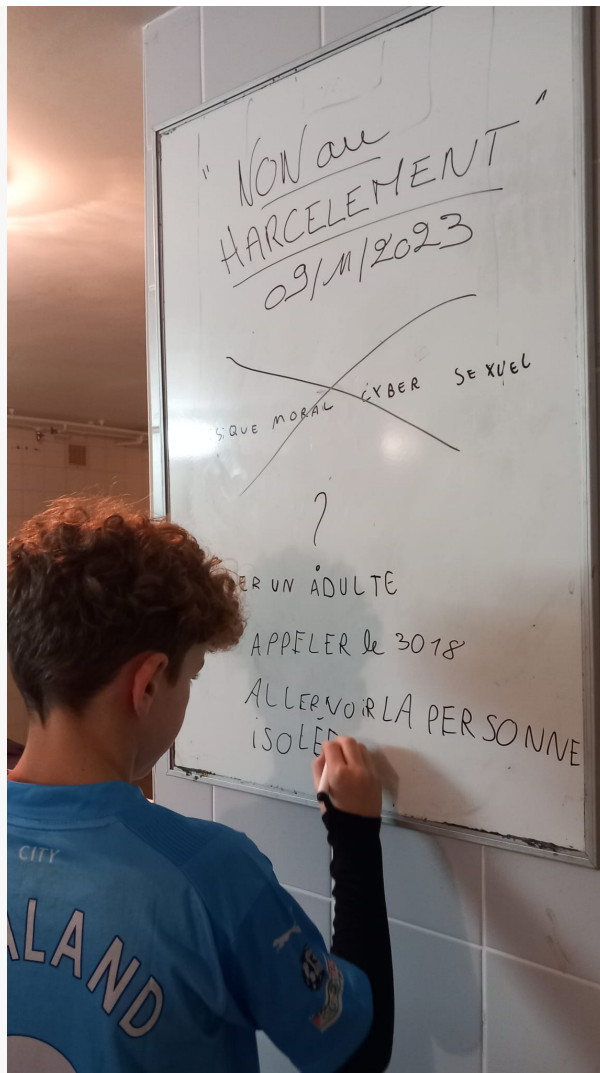 " NON au
HARCELEMENT "
09/11/2023
SIQUE MORAL CYBER SEXUEL
?
ER UN ADULTE
APPELER le 3018
ALLER VOIR LA PERSONNE
ISOLÉE
CITY
ALAND